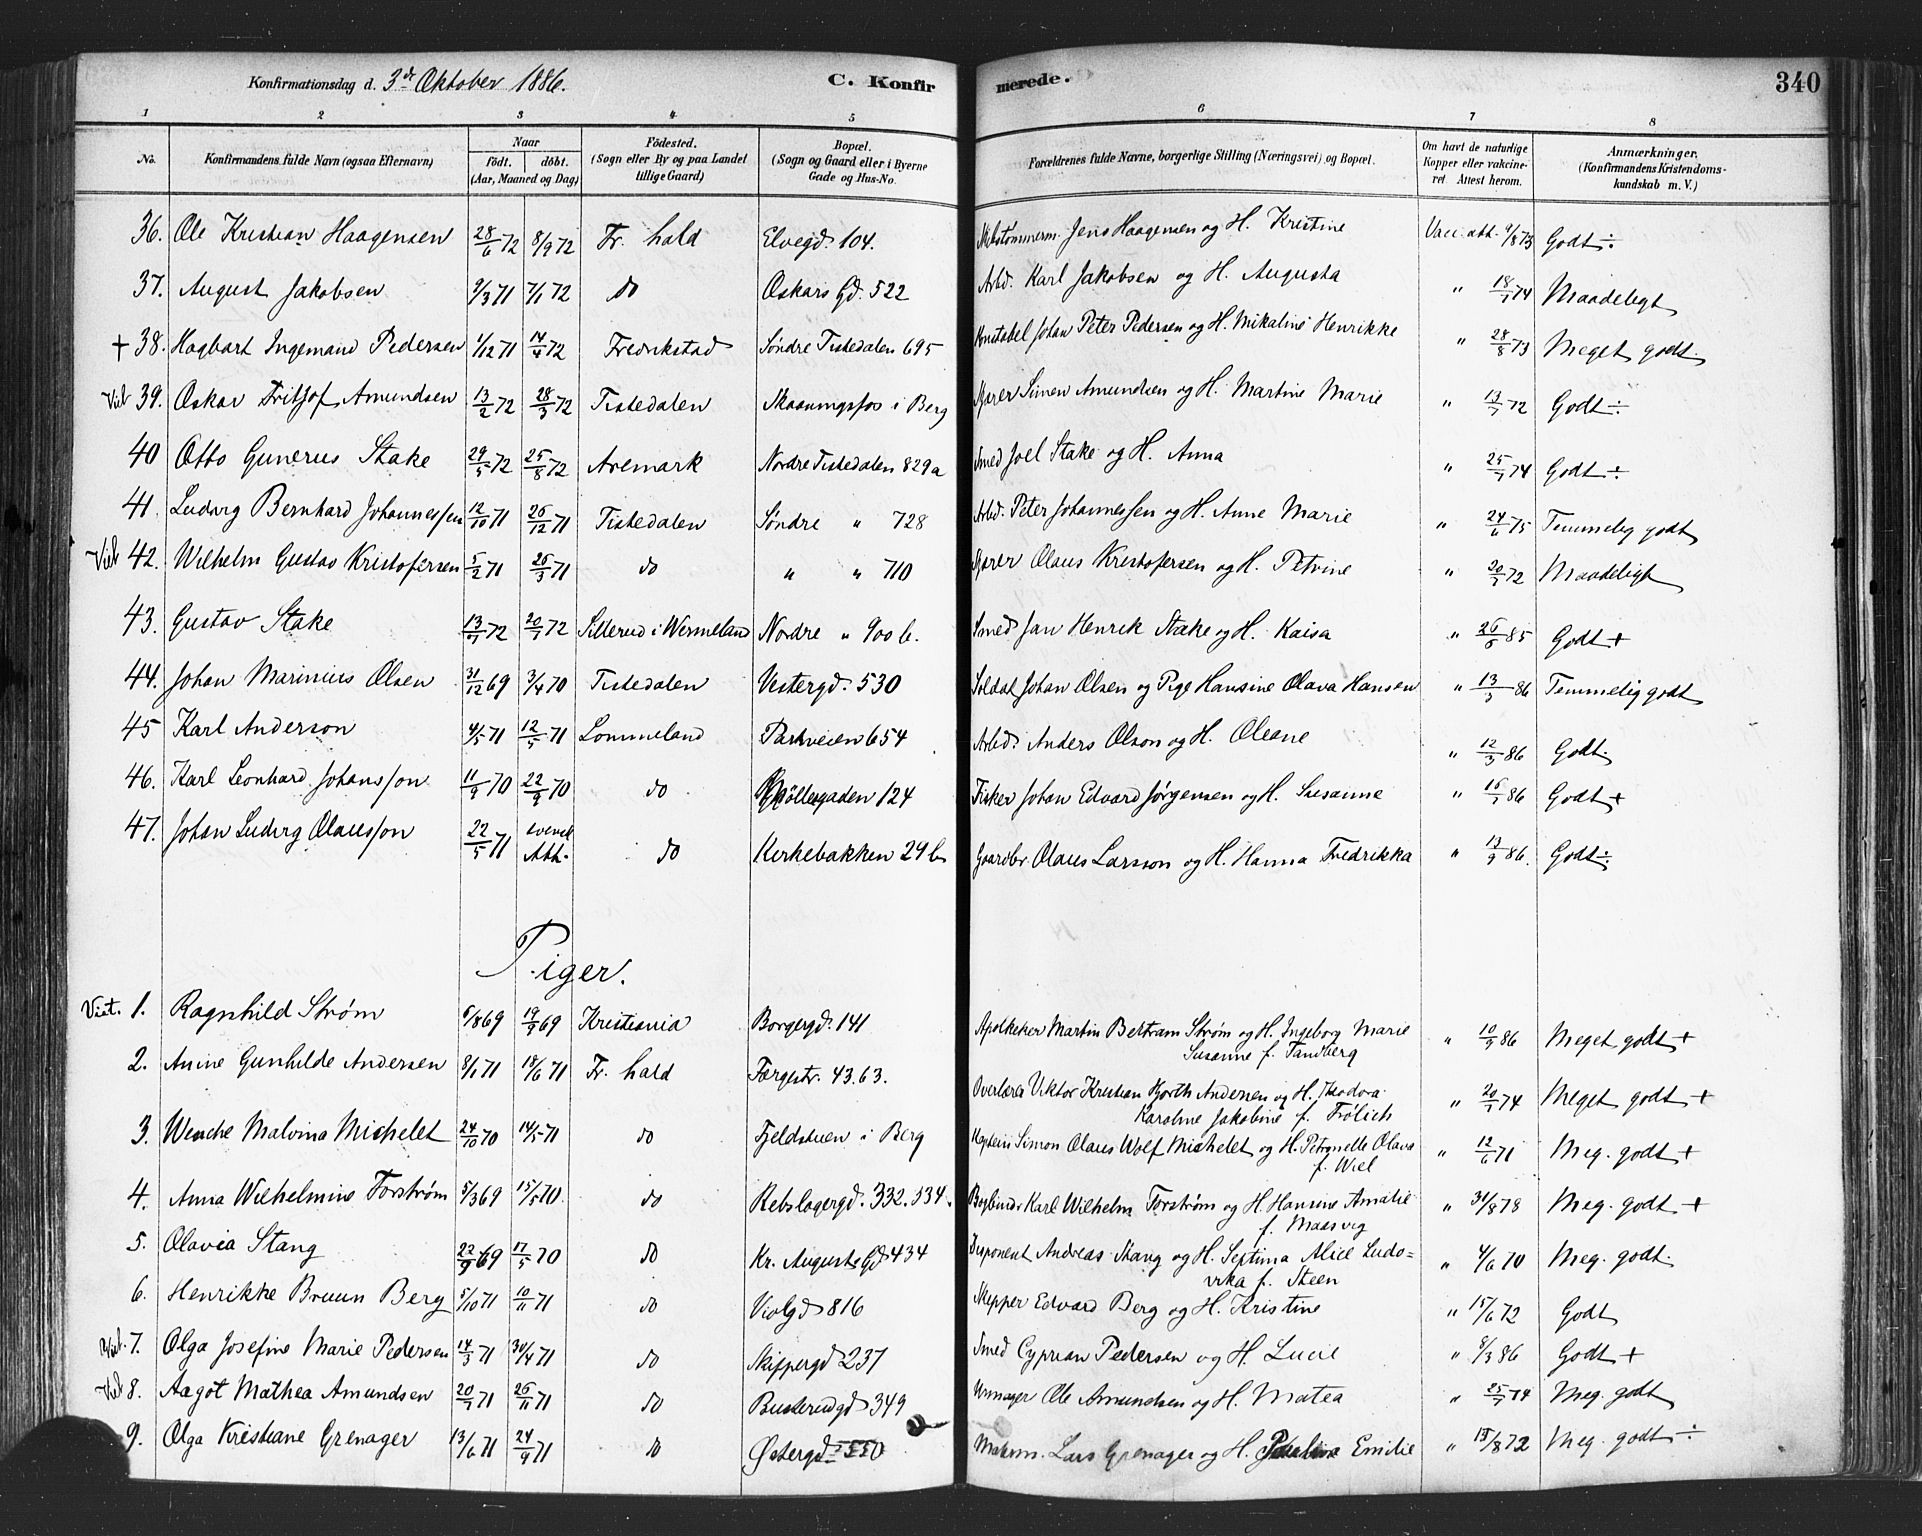 Konfirmationsdag d. 3de Oktober 1886.
C. Konfirmerede.
340
1 2 3 4 5 6 7 8
No. Konfirmandens fulde Navn (ogsaa Efternavn) Naar födt. döbt. (Aar, Maaned og Dag) Födested. (Sogn eller By og paa Landet tillige Gaard) Bopæl. (Sogn og Gaard eller i Byerne Gade og Hus-No. Forældrenes fulde Navne, borgerlige Stilling (Næringsvei) og Bopæl. Om havt de naturlige Kopper eller vakcineret. Attest herom. Anmærkninger. (Konfirmandens Kristendomskundskab m. V.)
36. Ole Kristian Haagensen 28/6 72 8/9 72 Fr. hald Elvegd. 104. Skibstømmerm. Jens Haagensen og H. Kristine Vacc. att. 9/8 73 Godt ÷
37. August Jakobsen 9/3 71 7/1 72 do Oskars Gd. 522 Arbd. Karl Jakobsen og H. Augusta " 18/1 74 Maadeligt
+ 38. Hagbart Ingemand Pedersen 1/12 71 14/4 72 Fredrikstad Søndre Tistedalen 695 Konstabel Johan Peter Pedersen og H. Mikaline Henrikke " 28/8 73 Meget godt.
39. Oskar Fritjof Amundsen 13/2 72 28/3 72 Tistedalen Skaaningsfos i Berg Kjører Simen Amundsen og H. Martine Marie " 13/7 72 Godt ÷
40 Otto Gunerus Stake 29/5 72 25/8 72 Aremark Nordre Tistedalen 829a Smed Joel Stake og H. Anna " 25/7 74 Godt ÷
41. Ludvig Bernhard Johannessen 12/10 71 26/12 71 Tistedalen Søndre " 728 Arbd. Peter Johannessen og H. Anne Marie " 24/6 75 Temmelig godt
42. Wilhelm Gustav Kristofersen 5/2 71 26/3 71 do " " 710 Kjører Olaus Kristofersen og H. Petrine " 20/7 72 Maadeligt
43. Gustav Stake 13/7 72 20/7 72 Sillerud i Wermeland Nordre " 900 b. Smed Jan Henrik Stake og H. Kaisa " 26/6 85 Godt +
44. Johan Marinius Olsen 31/12 69 3/4 70 Tistedalen Vestergd. 530 Soldat Johan Olsen og Pige Hansine Olava Hansen " 13/3 86 Temmelig godt
45 Karl Anderson 4/5 71 12/5 71 Lommeland Parkveien 654 Arbd. Anders Olson og H. Oleane " 12/3 86 Godt.
46. Karl Leonhard Johansson 11/9 70 22/9 70 do Møllergaden 124 Fisker Johan Edvard Jørgensen og H. Susanne " 16/7 86 Godt +
47. Johan Ludvig Olausson 22/5 71 svensk Att. do Kirkebakken 29 b Gaardbr. Olaus Larsson og H. Hanna Fredrikka " 13/9 86. Godt ÷
Piger.
1. Ragnhild Strøm 6/8 69 19/9 69 Kristiania Borgergd. 141 Apotheker Martin Bertram Strøm og H. Ingeborg Marie Susanne f. Tandberg " 10/9 86 Meget godt +
2. Anine Gunhilde Andersen 8/1 71 18/6 71 Fr. hald Færgestr. 43.63. Overlærer Viktor Kristian Hjorth Andersen og H. Theodora Karoline Jakobine f. Frölich " 20/7 74 Meget godt +
3. Wenche Malvina Michelet 24/10 70 14/5 71 do Fjeldstuen i Berg Kaptein Simon Olaus Wolf Michelet og H. Petronelle Olava f. Wiel " 12/6 71 Meg. godt +
4. Anna Wilhelmine Forstrøm 5/3 69 15/5 70. do Rebslagergd. 332.534. Bogbinder Karl Wilhelm Forstrøm og H. Hansine Amalie f. Maasvig " 31/8 78 Meg. godt +
5. Olavia Stang 22/9 69 17/5 70 do Kr. Augusts Gd 434 Disponent Andreas Stang og H. Septima Alice Ludovika f. Steen " 4/6 70 Meg. godt.
6. Henrikke Bruun Berg 5/10 71 10/11 71 do Violgd 816 Skipper Edvard Berg og H. Kristine " 15/6 72 Godt
7. Olga Josefine Marie Pedersen 14/3 71 30/4 71 do Skippergd 237 Smed Cyprian Pedersen og H. Lucie " 8/3 86 Godt +
8. Aagot Mathea Amundsen 20/7 71 26/11 71 do Buskerudgd 349 Urmager Ole Amundsen og H. Matea " 25/7 74 Meg. godt
9. Olga Kristiane Grenager 13/6 71 24/9 71 do Østergd 550 Lars Grenager og H. Emilie " 15/8 72 Meg. godt ÷